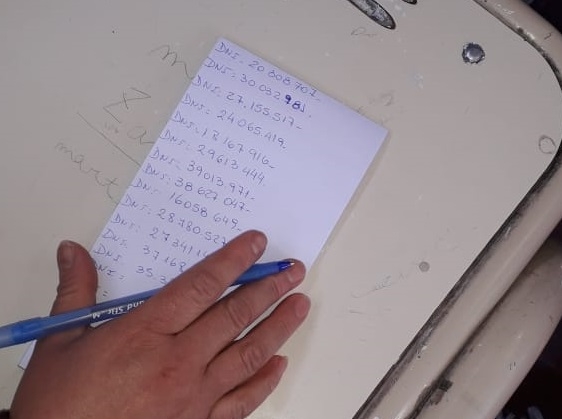 DNI: 20 808.707-
DNI: 30 032 981-
DNI: 27.155.517-
DNI: 24 065.419-
DNI: 18 167 916-
DNI: 29613 444
DNI: 39013 971-
DNI: 38 627 047-
DNI: 16058 649-
DNI: 28.780.527
DNI: 27341
DNI: 37168
DNI: 35.3